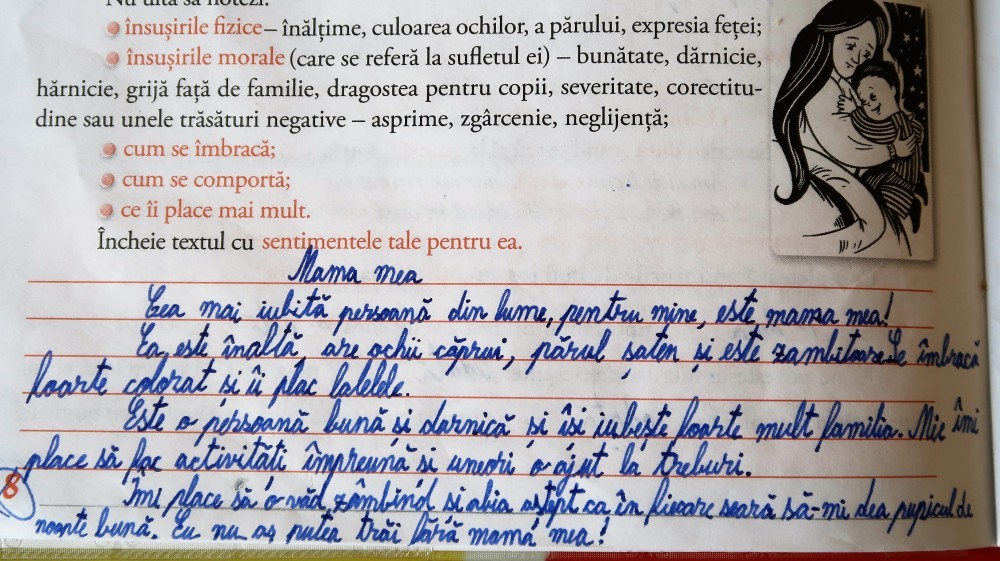 Nu uita să notezi:
însușirile fizice – înălțime, culoarea ochilor, a părului, expresia feței;
însușirile morale (care se referă la sufletul ei) – bunătate, dărnicie,
hărnicie, grijă față de familie, dragostea pentru copii, severitate, corectitu-
dine sau unele trăsături negative – asprime, zgârcenie, neglijență;
cum se îmbracă;
cum se comportă;
ce îi place mai mult.
Încheie textul cu sentimentele tale pentru ea.
Mama mea
Cea mai iubită persoană din lume, pentru mine, este mama mea!
Ea este înaltă, are ochii căprui, părul șaten și este zâmbitoare. Se îmbracă
foarte colorat și îi plac lalelele.
Este o persoană bună și darnică și își iubește foarte mult familia. Mie îmi
place să fac activități împreună și uneori o ajut la treburi.
8
Îmi place să o văd zâmbind și abia aștept ca în fiecare seară să-mi dea pupicul de
noapte bună. Eu nu aș putea trăi fără mama mea!